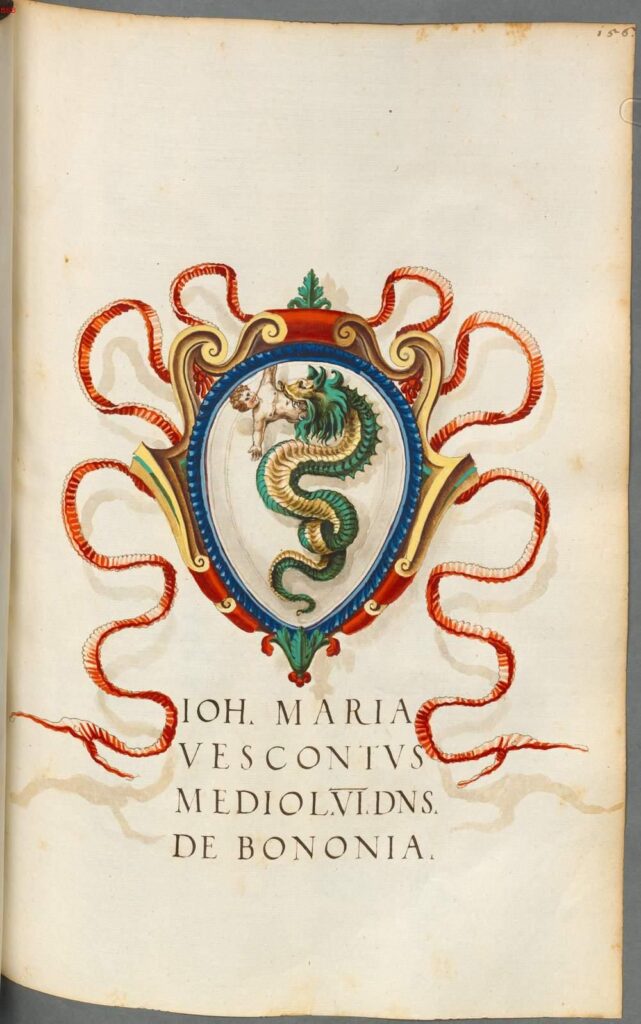 156.
IOH. MARIA
VESCONTVS
MEDIOL.VI.DNS.
DE BONONIA.